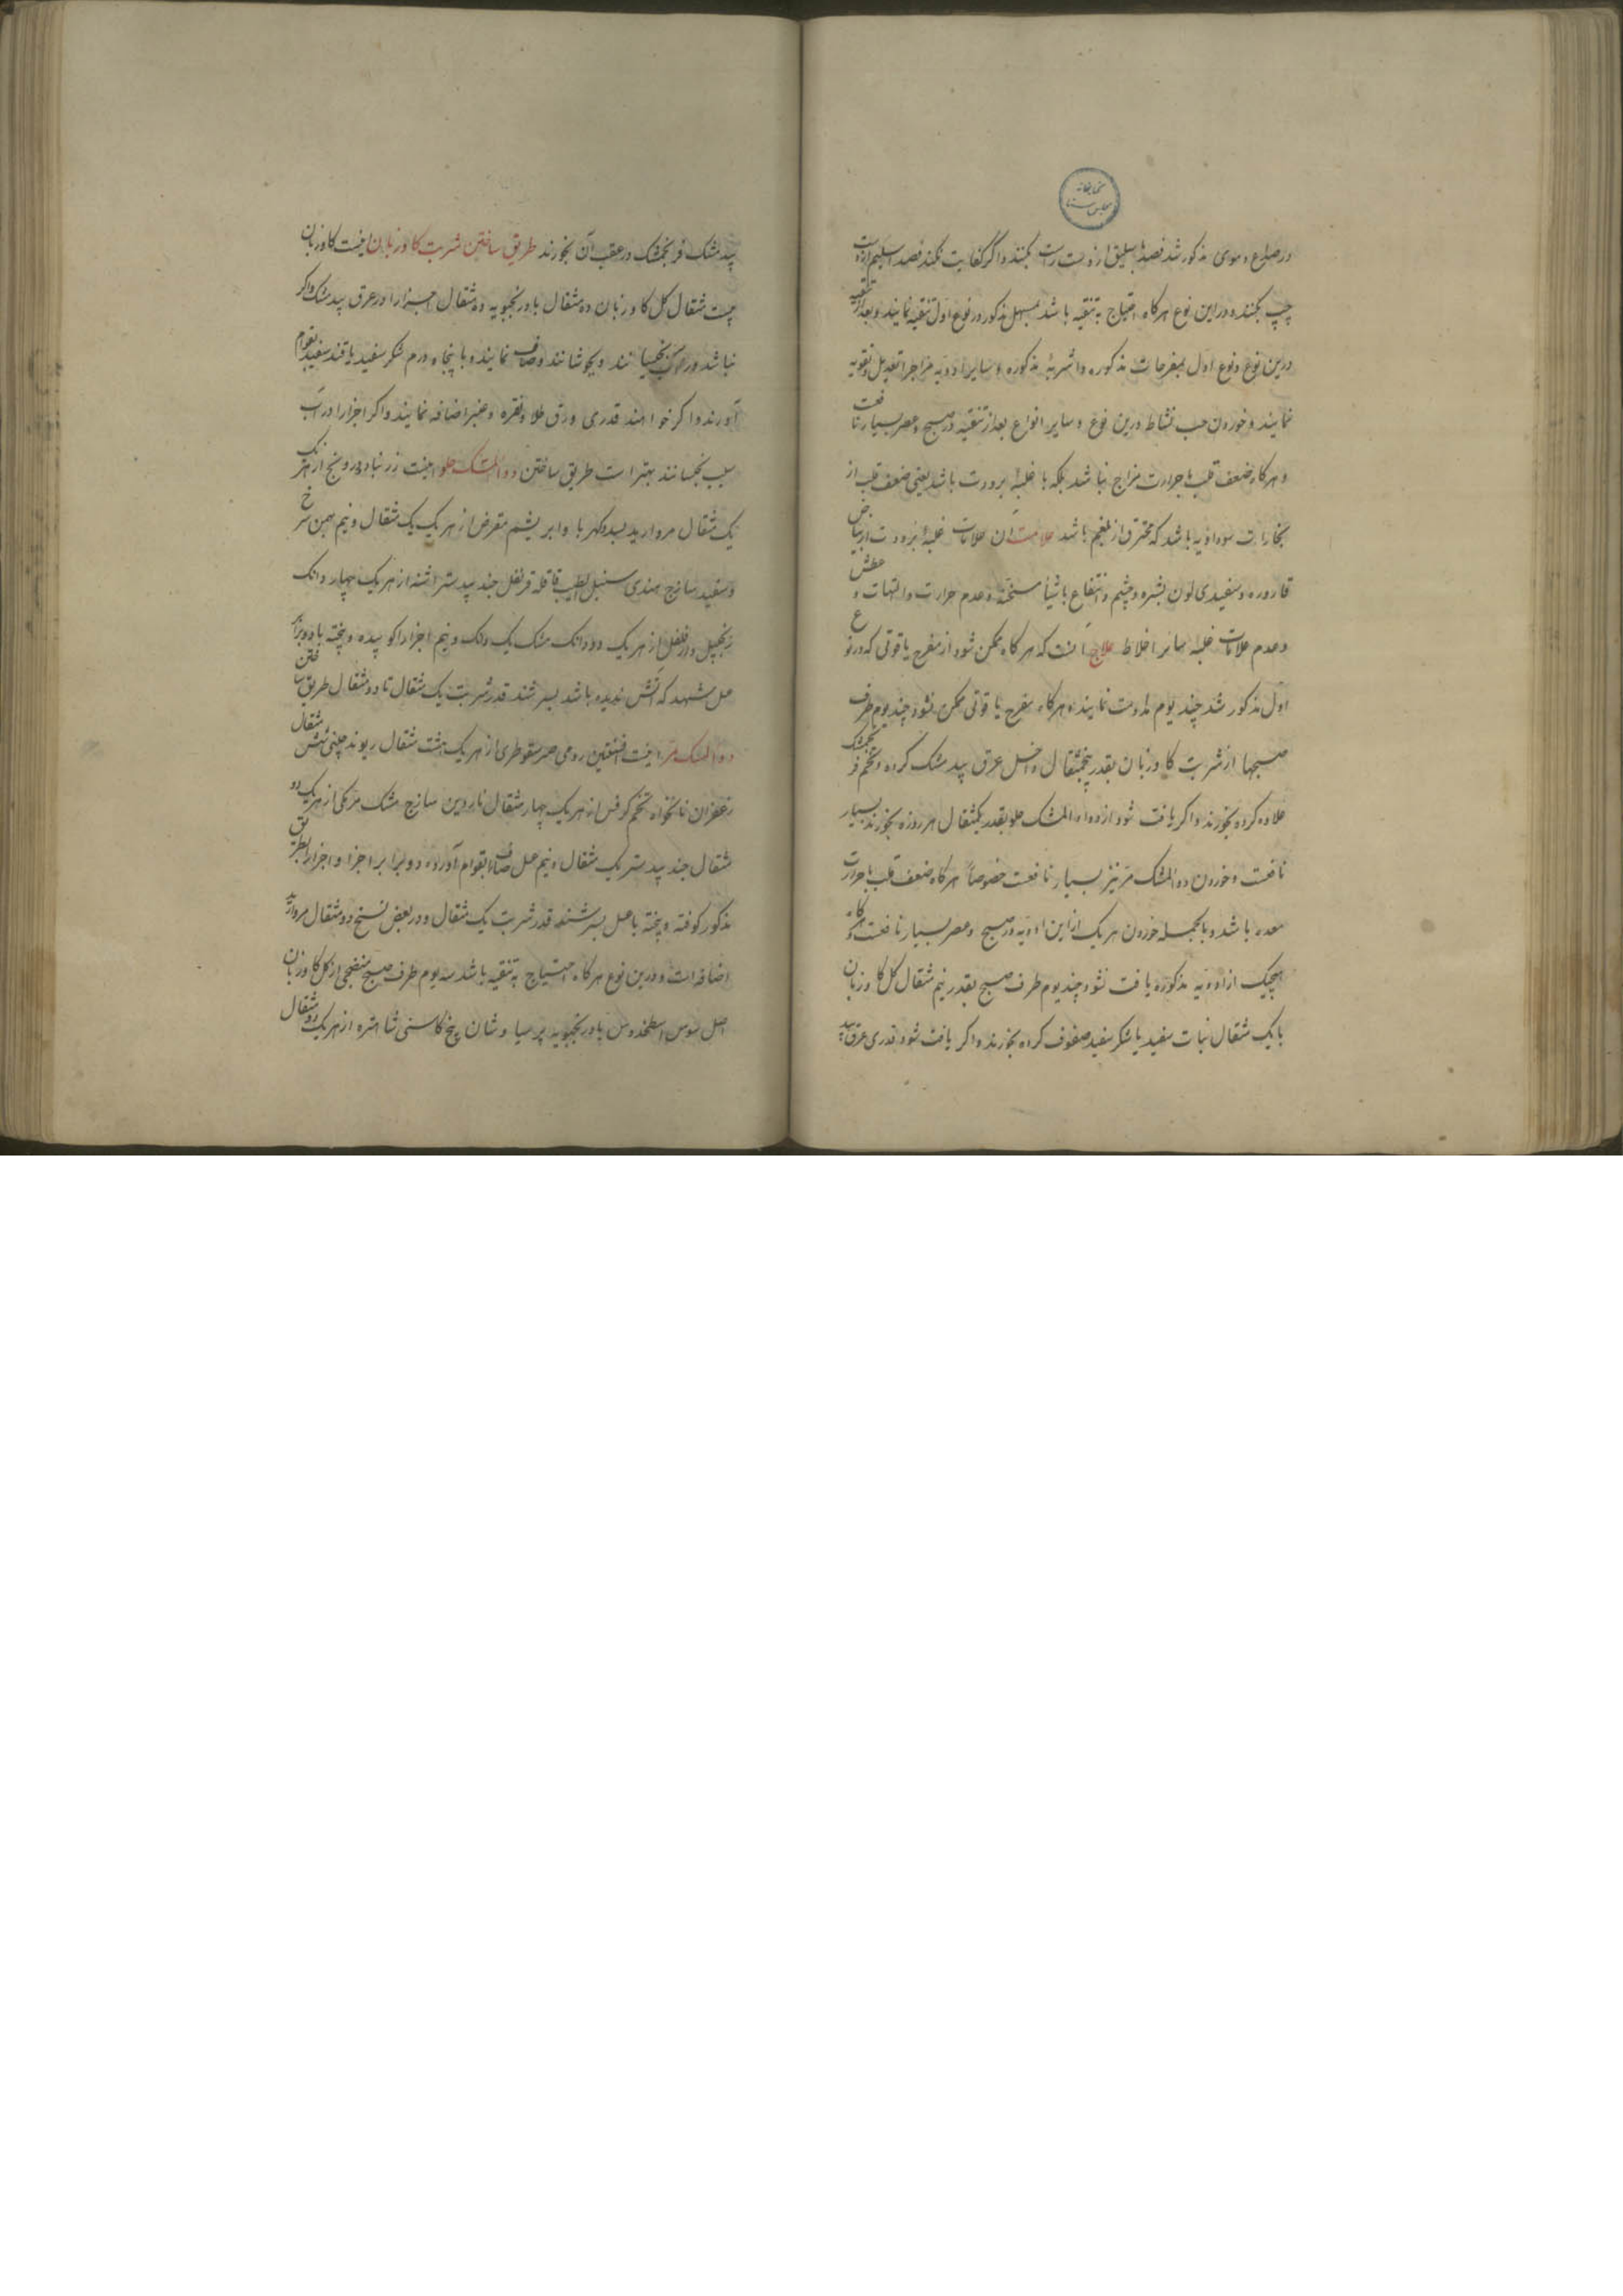 در صداع دموی مذکور شد فصد باسلیق از دست راست بکنند و اگر کفایت نکند فصد اسیلم از دست
چپ بکنند و در این نوع هرگاه احتیاج به تنقیه باشد بمسهل مذکور در نوع اول تنقیه نمایند و بعد از تنقیه
درین نوع و نوع اول بمفرحات مذکوره و اشربهٔ مذکوره و سایر ادویه مزاج را تعدیل و تقویه
نمایند و خوردن حب نشاط درین نوع و سایر انواع بعد از تنقیه در صبح و عصر بسیار نافعست
و هرگاه ضعف قلب با حرارت مزاج نباشد بلکه با غلبهٔ برودت باشد یعنی ضعف قلب از
بخارات سوداویه باشد که محترق از بلغم باشد علامت آن علامات غلبهٔ برودت از بیاض
قاروره و سفیدی لون بشره و چشم و انتفاع باشیأ مسخنة و عدم حرارت و التهاب و عطش
و عدم علامات غلبه سایر اخلاط علاج آنست که هرگاه ممکن شود از مفرح یاقوتی که در نوع
اول مذکور شد چند یوم مداومت نمایند و هرگاه مفرح یاقوتی ممکن نشود چند یوم طرف
صبحها از شربت کاوزبان بقدر پنجمثقال داخل عرق بیدمشک کرده و تخم فرنجمشک
علاوه کرده بخورند و اگر یافت شود از دواء المشک حلو بقدر یکمثقال هر روزه بخورند بسیار
نافعست و خوردن دواالمشک مر نیز بسیار نافعست خصوصاً هرگاه ضعف قلب با حرارت
معده باشد و بالجمله خوردن هر یک از این ادویه در صبح و عصر بسیار نافعست و هرگاه
هیچیک از ادویه مذکوره یافت نشود چند یوم طرف صبح بقدر نیم مثقال گل کاوزبان
با یک مثقال نبات سفید یا شکر سفید صفوف کرده بخورند و اگر یافت شود قدری عرق بید
بیدمشک فرنجمشک در عقب آن بخورند طریق ساختن شربت کاوزبان اینست کاوزبان
بیست مثقال گل کاوزبان ده مثقال بادرنجبویه ده مثقال اجزا را در عرق بیدمشک و اگر
نباشد در آب بخیسانند و بجوشانند و صاف نمایند و با پنجاه درم شکر سفید یا قند سفید بقوام
آورند و اگر خواهند قدری ورق طلا و نقره و عنبر اضافه نمایند و اگر اجزا را در آب
سیب بخیسانند بهتر است طریق ساختن دواالمشک حلو اینست زرنباد درونج از هر یک
یک مثقال مروارید بسد کهربا و ابریشم مقرض از هر یک یک مثقال و نیم بهمن سرخ
و سفید ساذج هندی سنبل الطیب قاقله قرنفل جندبیدستر اشنه از هر یک چهار دانک
زنجبیل دارفلفل از هر یک دو دانک مشک یک دانک و نیم اجزا را کوبیده و بیخته با دو برابر
عسل شهد که آتش ندیده باشد بسرشند قدر شربت یک مثقال تا دو مثقال طریق ساختن
دواالمسک مر اینست افسنتین رومی صبر سقوطری از هر یک هشت مثقال ریوند چینی شش مثقال
زعفران نانخواه تخم کرفس از هر یک چهار مثقال ناردین ساذج مشک مر مکی از هر یک دو
مثقال جندبیدستر یک مثقال و نیم عسل صاف بقوام آورده دو برابر اجزا و اجزا را بطریق
مذکور کوفته و بیخته با عسل بسرشند قدر شربت یک مثقال و در بعض نسخ دو مثقال مروارید
اضافه است و درین نوع هرگاه احتیاج به تنقیه باشد سه یوم طرف صبح منضجی از گل کاوزبان
اصل سوس اسطخدوس بادرنجبویه پرسیاوشان بیخ کاسنی شاهتره از هر یک دو مثقال